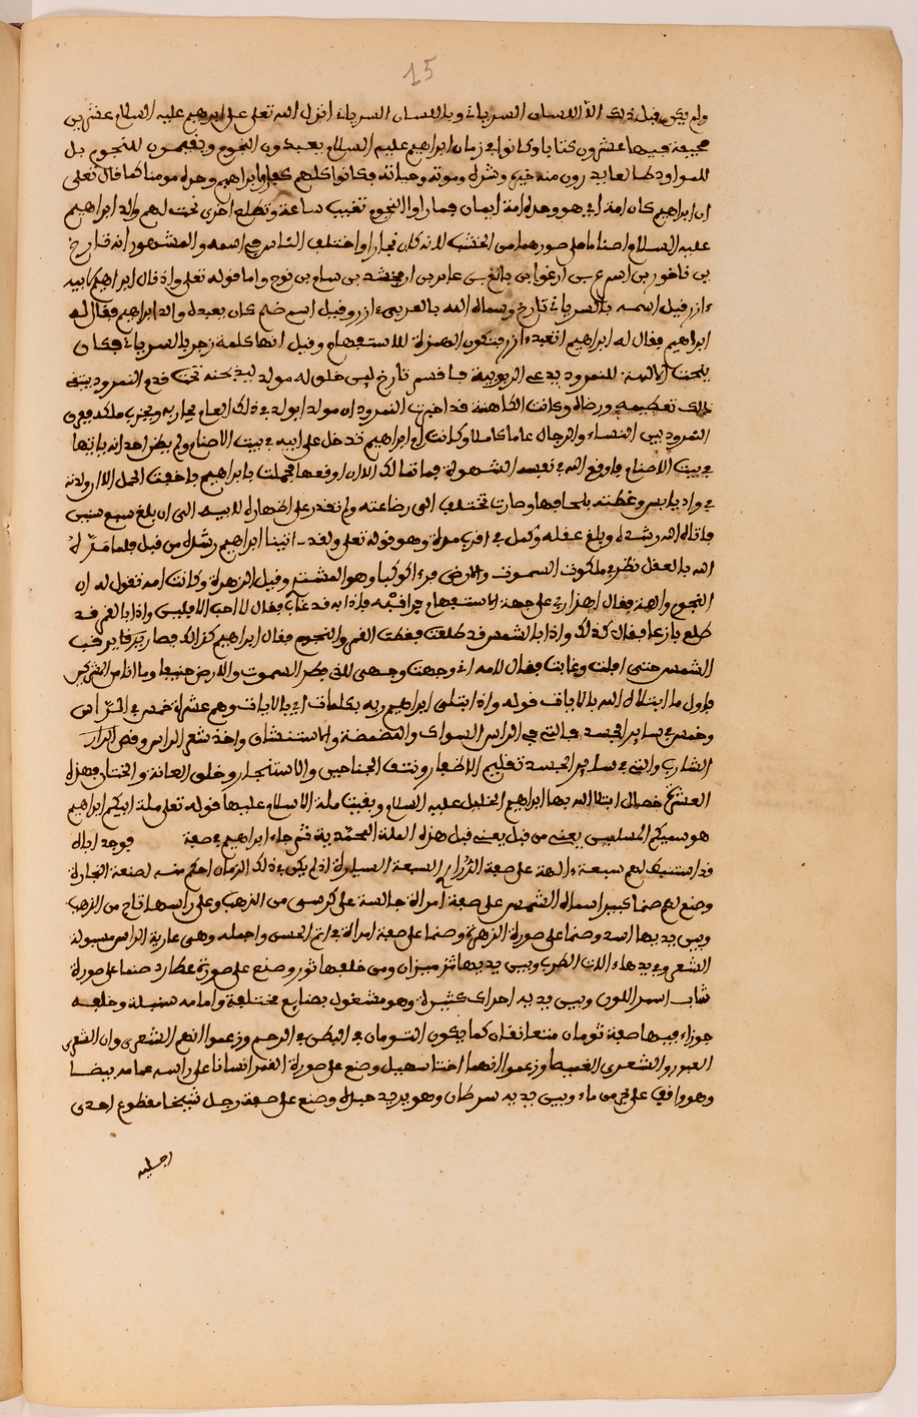 15
ولم يكن قبل ذلك الا اللسان السرياني وباللسان السرياني انزل الله تعلى على ابرهيم عليه السلام عشرين
صحيفة فيها عشرون كتابا وكانوا في زمان ابراهيم عليه السلام يعبدون النجوم ويقيمون للنجوم بل
للمولود طالعا يدرون منه خيره وشره وموته وحياته فكانوا كلهم كفارا وابراهيم وحده مومنا كما قال تعلى
ان ابراهيم كان امة اي هو وحده امة ايمان فما راوا النجوم تغيب ساعة وتطلع اخرى نحت لهم والد ابراهيم
عليه السلام اصناما على صورهما من الخشب لانه كان نجارا واختلف الناس في اسمه والمشهور انه تارخ
بن ناخور بن اسرع بن ارغوا بن بالغ بن عابر بن ارفخشد بن سام بن نوح واما قوله تعلى واذ قال ابراهيم لابيه
ءازر قيل اسمه بالسرياني تارخ وسماه الله بالعربي ءازر وقيل اسم صنم كان يعبده والد ابراهيم فقال له
ابراهيم فقال له ابراهيم اتعبد ءازر فتكون الهمزة للاستفهام وقيل انها كلمة زجر بالسرياني فكان
ينحت الالهة للنمرود يدعى الربوبية فاقسم تارخ لين خلق له مولد ليذبحنه تحت قدم النمرود يبتغي
ذلك تعظيمه ورضاه وكانت الكاهنة قد اخبرت النمرود ان مولدا يولد في ذلك العام يحاربه ويخرب ملكه ففرق
النمرود بين النساء والرجال عاما كاملا وكانت ام ابراهيم تدخل على ابيه في بيت الاصنام ولم يظن احد انه ياتيها
في بيت الاصنام فاوقع الله في نفسه الشهوة فما تمالك الا ان اوقعها فحملت بابراهيم فاخفت الحمل الا ان ولدته
في واد يابس وغطته بلحافها وصارت تختلف الى رضاعته ولم تقدر على اظهاره لابيه الى ان بلغ سبع سنين
فاتاه الله رشده وبلغ عقله وكمل في اقرب مدة وهو قوله تعلى ولقد اتينا ابراهيم رشده من قبل فلما مر له
الله بالعقل نظر في ملكوت السموت والارض فرءا كوكبا وهو المشتري وقيل الزهرة وكانت امه تقول له ان
النجوم والهة فقال اهذا ربي على جهة الاستفهام فراقبه فاذا به قد غاب فقال لا احب الافلين واذا بالقمر قد
طلع بازغا فقال كذلك واذا بالشمس قد طلعت فغطت القمر والنجوم فقال ابراهيم كذالك فصار يترقب
الشمس حتى افلت وغابت فقال لامه اني وجهت وجهي للذي فطر السموت والارض حنيفا وما انا من المشركين
فاول ما ابتلاه الله بالايات قوله واذ ابتلى ابراهيم ربه بكلمات اي بالايات وهم عشرة خمس في الراس
وخمس في ساير الجسد فالتي في الراس السواك والمضمضة والاستنشاق واخذ شعر الراس وقص
الشارب والتي في ساير الجسد تقليم الاظفار ونتف الجناحين والاستنجار وحلق العانة والختان فهذه
العشر خصال ابتلا الله بها ابراهيم الخليل عليه السلام وبقيت ملة الاسلام عليها قوله تعلى ملة ابيكم ابراهيم
هو سميكم المسلمين يعني من قبل يعني قبل هذه الملة المحمدية ثم جاء ابراهيم في صفة فوجد اباه
قد استنبط لهم سبعة ءالهة على صفة الدراري السبعة السيارة اذ لم يكن في ذلك الزمان احكم منه لصنعة النجارة
وصنع لهم صنما كبيرا سماه الشمس على صفة امراة جالسة على كرسي من الذهب وعلى راسها تاج من الذهب
وبين يديها اسد وصنما على صورة الزهرة وصنما على صفة امراة في اتم الحسن واجمله وهي عارية الراس مسبولة
الشعر وبيدها ءالات الطرب وبين يديها ميزان ومن خلفها ثور وصنع على صورة عطارد صنما على صورة
شاب اسمر اللون وبين يديه احراك كثيرة وهو مشغول بصنايع مختلفة وامامه سنبلة وخلفه
جوزاء فيها صفة تومان متعانقان كما يكون التومان في البطن في الرحم وزعموا انهم الشعرى وان الشعرى
العبور والشعرى الغميط وزعموا انهما اختا سهيل وصنع على صورة القمر انسانا على راسه عمامة بيضا
وهو واقف على من ماء وبين يديه سرطان وهو يريد وصنع على صفة زحل شيخا مقطوع احدى